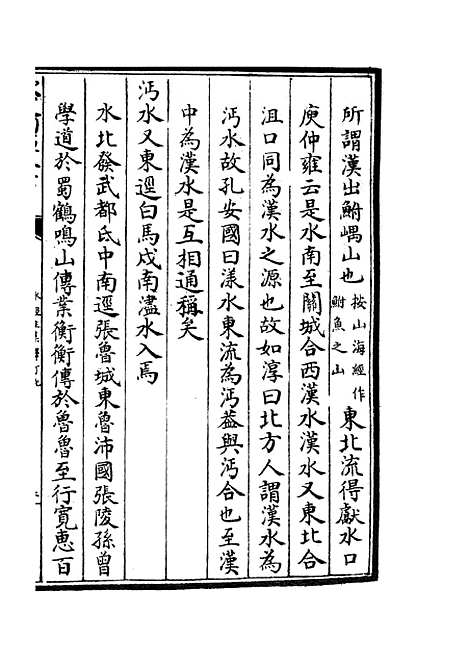 所謂漢出鮒嵎山也按山海經作鮒魚之山東北流得獻水口
庾仲雍云是水南至關城合西漢水漢水又東北合
沮口同為漢水之源也故如淳曰北方人謂漢水為
沔水故孔安國曰漾水東流為沔葢與沔合也至漢
中為漢水是互相通稱矣
沔水又東逕白馬戍南濜水入焉
水北發武都氐中南逕張魯城東魯沛國張陵孫曾
學道於蜀鶴鳴山傳業衡衡傳於魯魯至行寬惠百